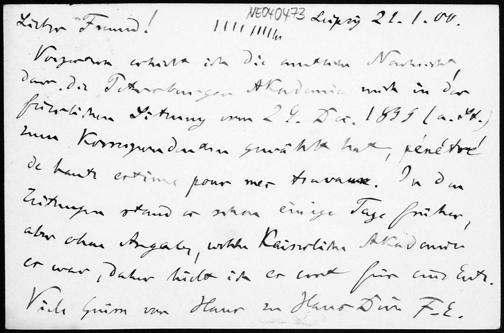 NE040473
Lieber Freund! Leipzig 21.1.00.
Vorgestern erhielt ich die amtliche Nachricht,
dass die Petersburger Akademie mich in der
feierlichen Sitzung vom 29. Dec. 1899 (a. St.)
zum Korrespondenten gewählt hat, pénétré
de haute estime pour mes travaux. In den
Zeitungen stand es schon einige Tage früher,
aber ohne Angabe, welche Kaiserliche Akademie
es war, daher hielt ich es erst für
Viele Grüsse von Haus zu Haus Dein F. E.